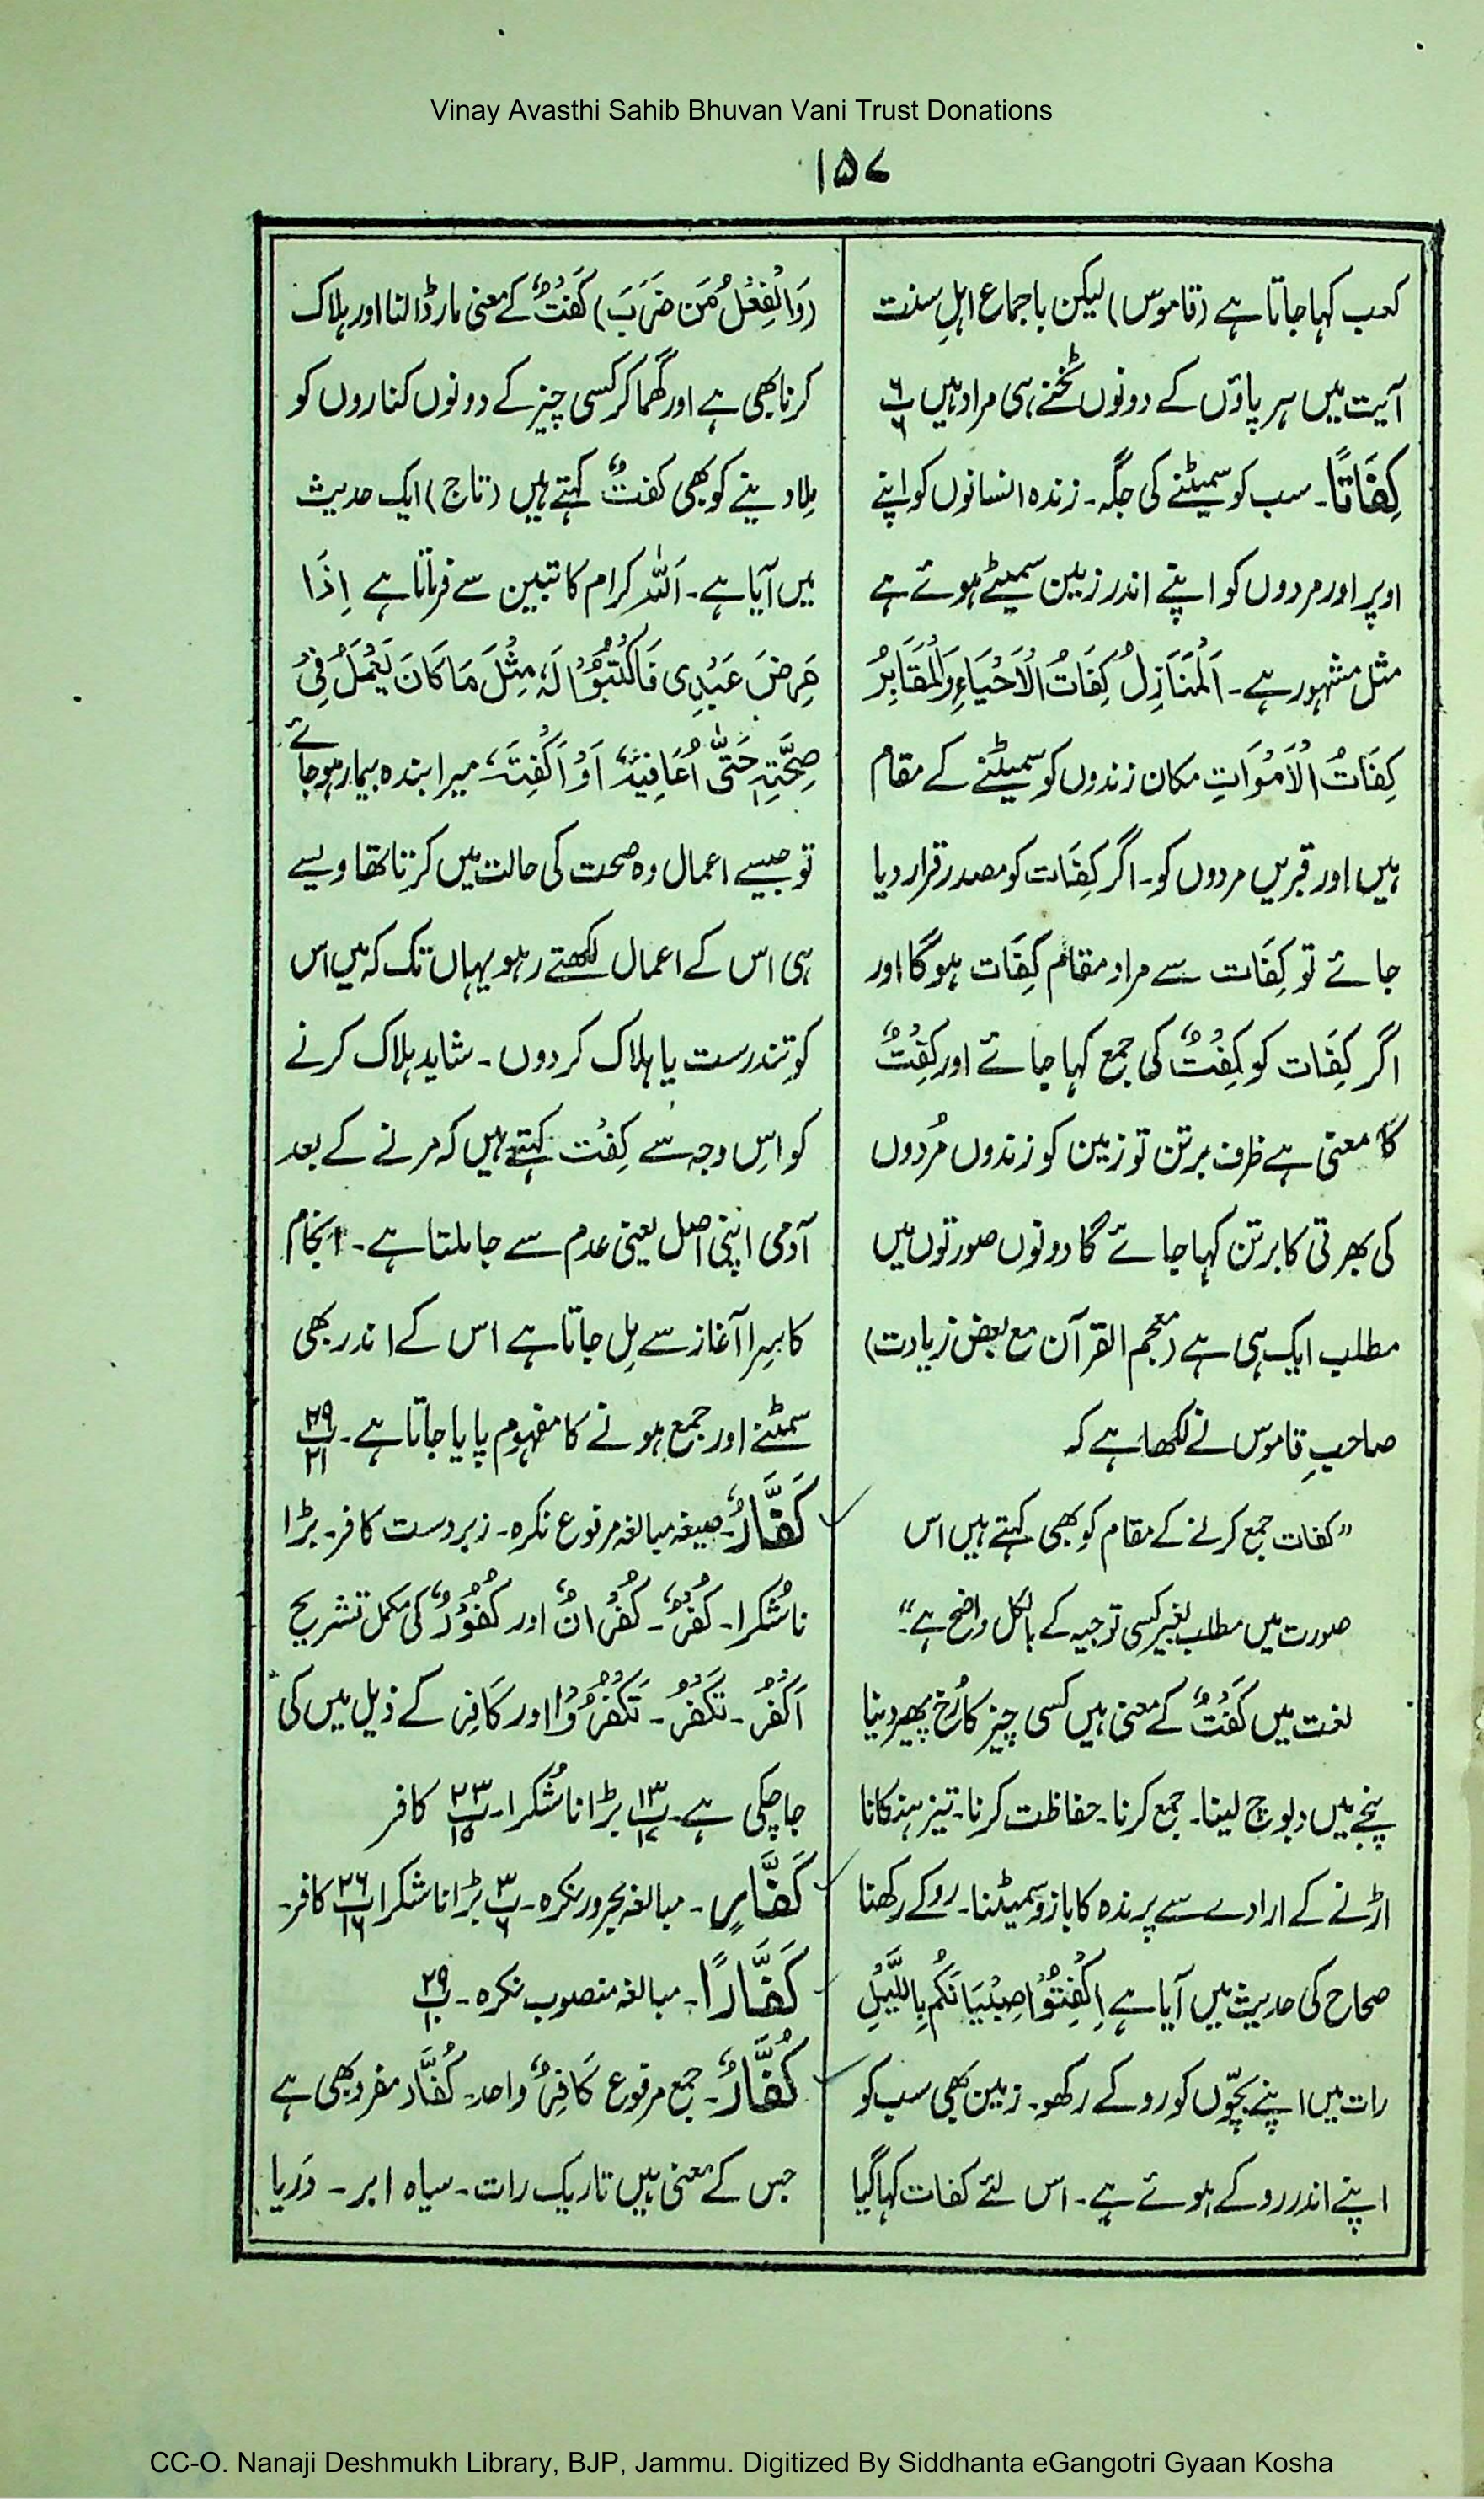 Vinay Avasthi Sahib Bhuvan Vani Trust Donations
۱۵۷
کعب کہا جاتا ہے (قاموس) لیکن باجماع اہلِ سنت
آیت میں ہر پاؤں کے دونوں ٹخنے ہی مراد ہیں پ ۶/۶
کِفَاتًا۔ سب کو سمیٹنے کی جگہ۔ زندہ انسانوں کو اپنے
اوپر اور مردوں کو اپنے اندر زمین سمیٹے ہوئے ہے
مثل مشہور ہے۔ اَلْمَنَازِلُ کِفَاتُ الْاَحْیَاءِ وَالْمَقَابِرُ
کِفَاتُ الْاَمْوَاتِ مکان زندوں کو سمیٹنے کے مقام
ہیں اور قبریں مردوں کو۔ اگر کِفَات کو مصدر قرار دیا
جائے تو کِفَات سے مراد مقام کِفَات ہوگا اور
اگر کِفَات کو کِفْتٌ کی جمع کہا جائے اور کِفْتٌ
کا معنی ہے ظرف برتن تو زمین کو زندوں مُردوں
کی بھرتی کا برتن کہا جائے گا دونوں صورتوں میں
مطلب ایک ہی ہے (معجم القرآن مع بعض زیادت)
صاحبِ قاموس نے لکھا ہے کہ
”کفات جمع کرنے کے مقام کو بھی کہتے ہیں اس
صورت میں مطلب بغیر کسی توجیہ کے بالکل واضح ہے“۔
لغت میں کَفْتٌ کے معنی ہیں کسی چیز کا رُخ پھیر دینا
پنجے میں دبوچ لینا۔ جمع کرنا۔ حفاظت کرنا۔ تیز ہنکانا
اڑنے کے ارادے سے پرندہ کا بازو سمیٹنا۔ روکے رکھنا
صحاح کی حدیث میں آیا ہے اِکْفِتُوْا صِبْیَانَکُمْ بِاللَّیْلِ
رات میں اپنے بچّوں کو روکے رکھو۔ زمین بھی سب کو
اپنے اندر روکے ہوئے ہے۔ اس لئے کفات کہا گیا
(وَالْفِعْلُ مِنْ ضَرَبَ) کَفْتٌ کے معنی مار ڈالنا اور ہلاک
کرنا بھی ہے اور گھما کر کسی چیز کے دونوں کناروں کو
مِلا دینے کو بھی کفتٌ کہتے ہیں (تاج) ایک حدیث
میں آیا ہے۔ اَللّٰہ کرام کاتبین سے فرماتا ہے اِذَا
مَرِضَ عَبْدِی فَاکْتُبُوْا لَہٗ مِثْلَ مَا کَانَ یَعْمَلُ فِیْ
صِحَّتِہٖ حَتّٰی اُعَافِیَہٗ اَوْ اَکْفِتَہٗ میرا بندہ بیمار ہو جائے
تو جیسے اعمال وہ صحت کی حالت میں کرتا تھا ویسے
ہی اس کے اعمال لکھتے رہو یہاں تک کہ میں اس
کو تندرست یا ہلاک کر دوں۔ شاید ہلاک کرنے
کو اس وجہ سے کِفْت کہتے ہیں کہ مرنے کے بعد
آدمی اپنی اصل یعنی عدم سے جا ملتا ہے۔ انجام
کا سِرا آغاز سے مِل جاتا ہے اس کے اندر بھی
سمٹنے اور جمع ہونے کا مفہوم پایا جاتا ہے۔ پ ۲۹/۲۱
کَفَّارٌ۔ صیغہ مبالغہ مرفوع نکرہ۔ زبردست کافر۔ بڑا
ناشُکرا۔ کُفْرٌ۔ کُفْرَانٌ اور کُفُوْرٌ کی مکمل تشریح
اَکْفُرْ۔ تَکْفُرْ۔ تَکْفُرُوْا اور کَافِر کے ذیل میں کی
جا چکی ہے۔ پ ۱۳/۱۷ بڑا ناشُکرا۔ پ ۲۳/۱۵ کافر
کَفَّارٍ۔ مبالغہ مجرور نکرہ۔ پ ۳/۶ بڑا ناشکرا پ ۲۶/۱۶ کافر۔
کَفَّارًا۔ مبالغہ منصوب نکرہ۔ پ ۲۹/۱۰
کُفَّارٌ۔ جمع مرفوع کَافِرٌ واحد۔ کُفَّار مفرد بھی ہے
جس کے معنی ہیں تاریک رات۔ سیاہ ابر۔ دَریا
CC-O. Nanaji Deshmukh Library, BJP, Jammu. Digitized By Siddhanta eGangotri Gyaan Kosha